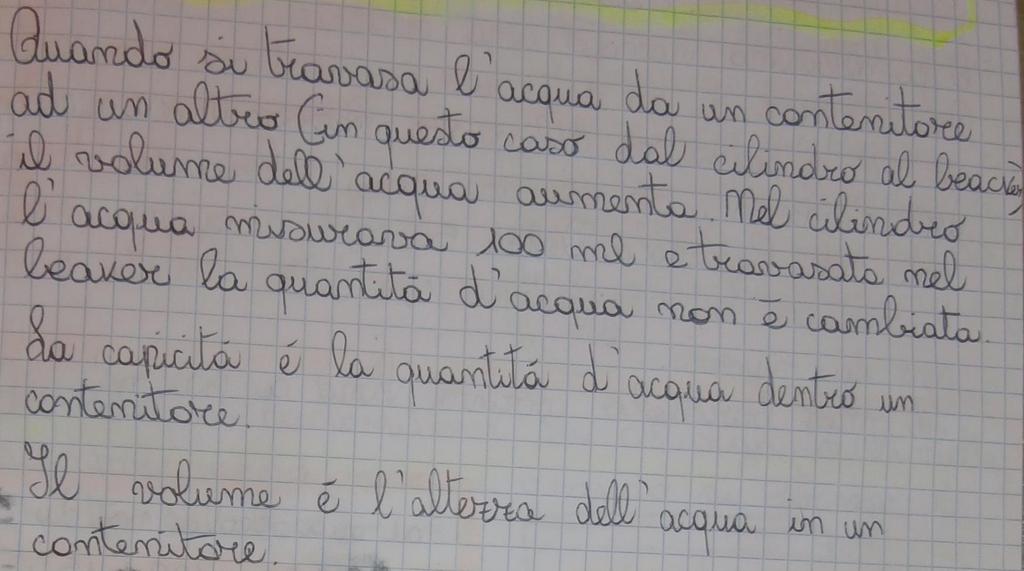 Quando si travasa l'acqua da un contenitore
ad un altro (in questo caso dal cilindro al beacker)
il volume dell'acqua aumenta. Nel cilindro
l'acqua misurava 100 ml e travasata nel
beaker la quantità d'acqua non è cambiata.
La capicità é la quantità d'acqua dentro un
contenitore.
Il volume è l'altezza dell'acqua in un
contenitore.